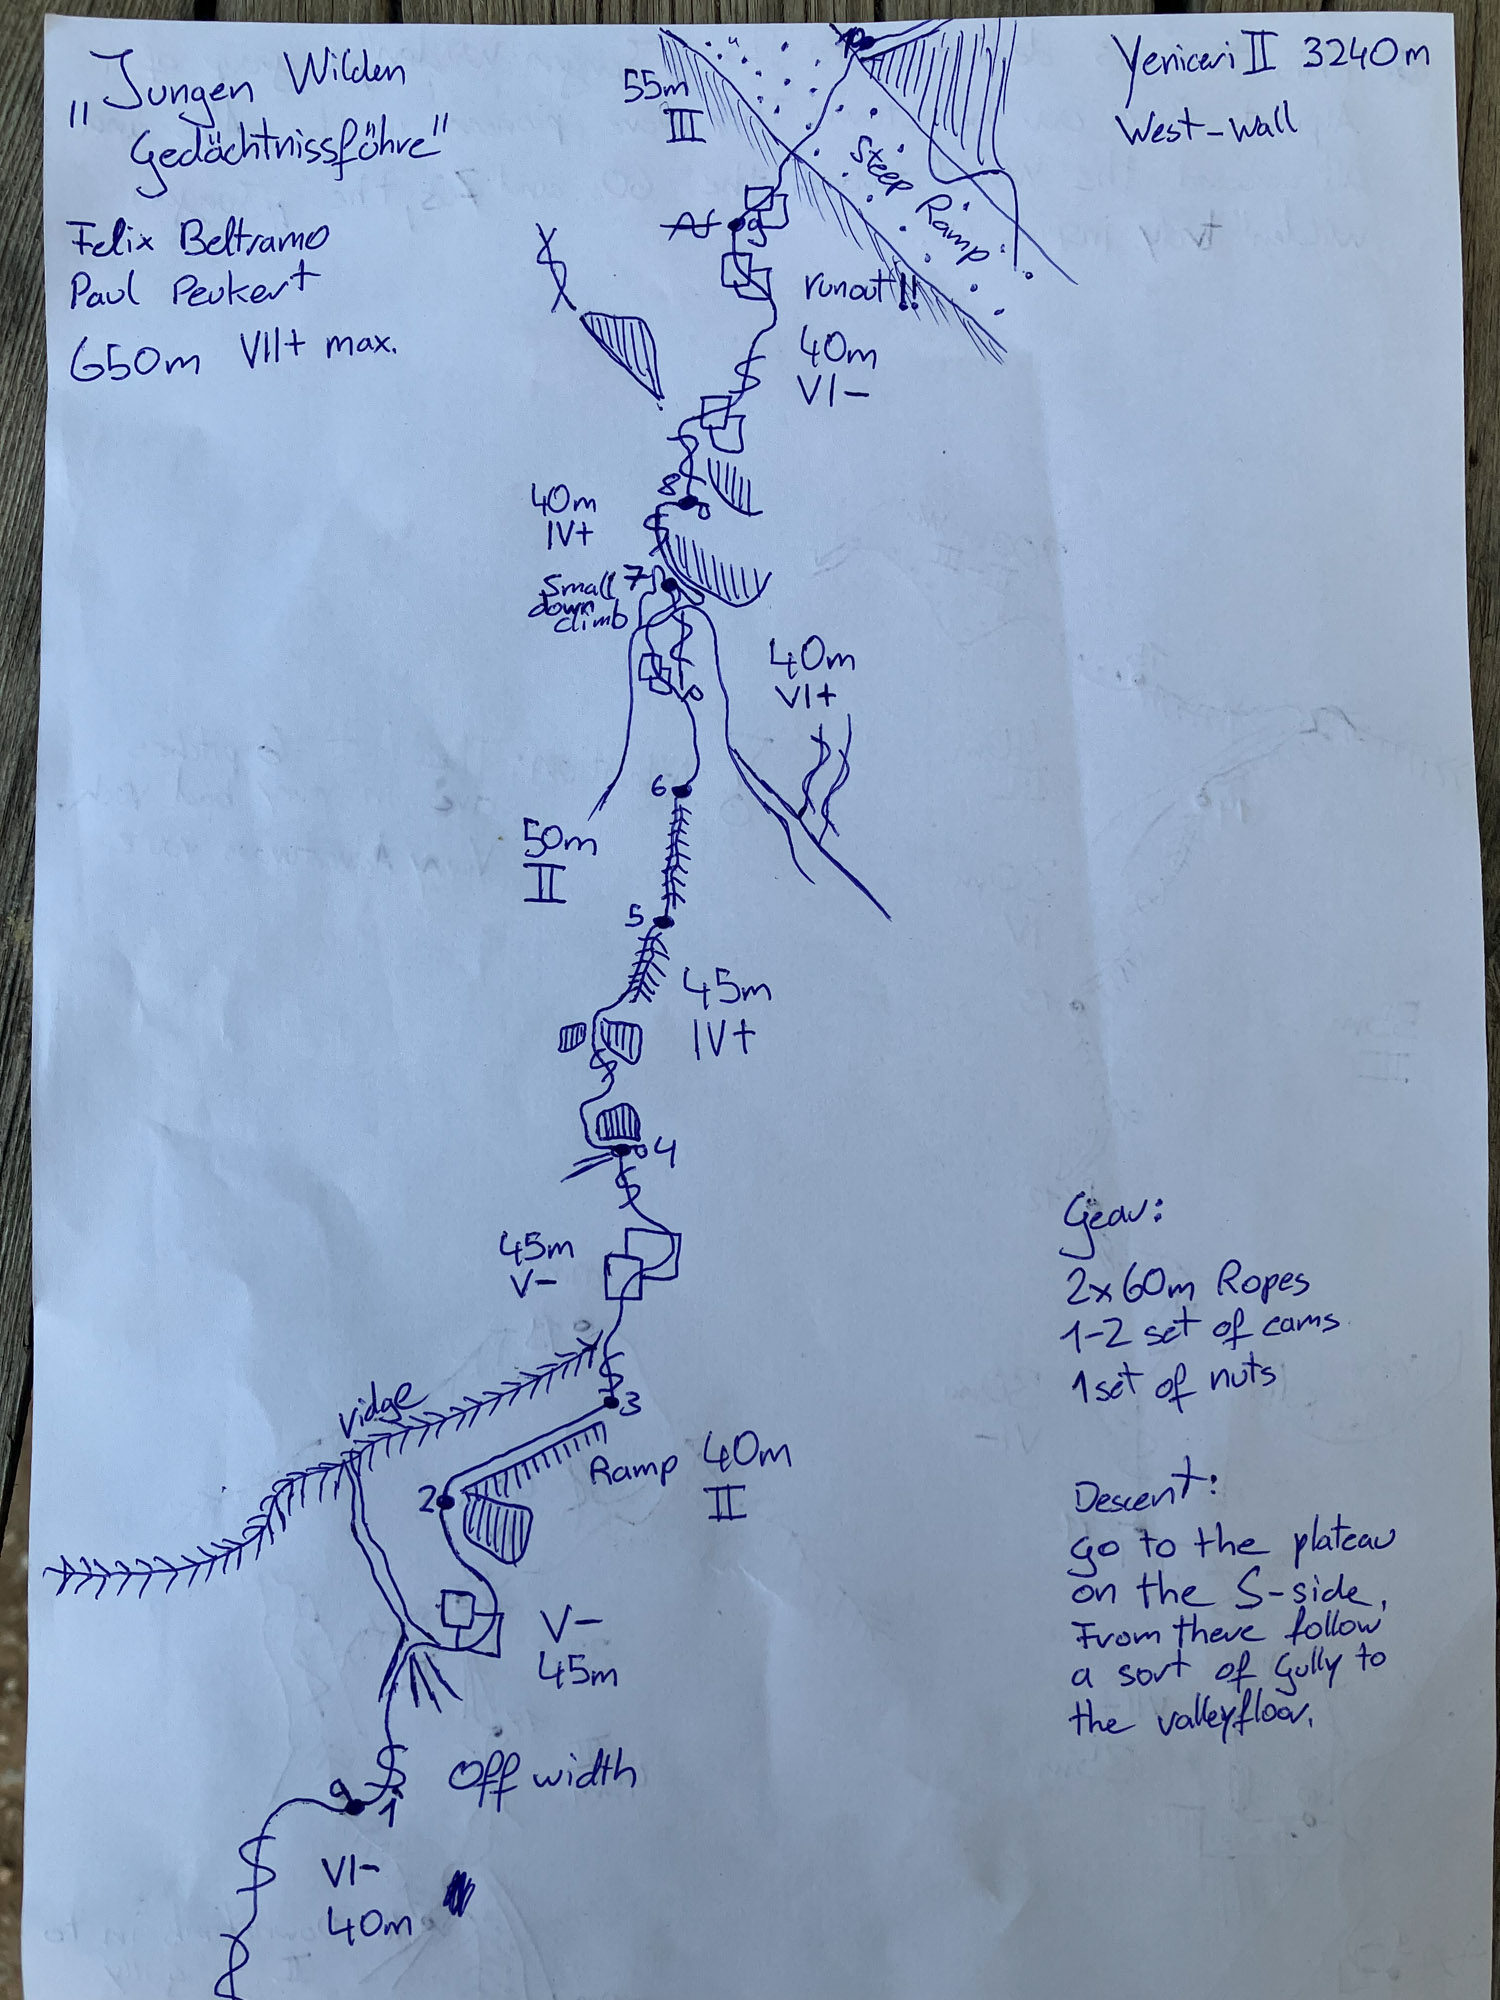 „Jungen Wilden
Gedächtnissföhre"
Felix Beltramo
Paul Peukert
650m VII+ max.
Yeniceri II 3240m
West-Wall
55m
III
Steep Ramp
9
runout!!
40m
VI-
8
40m
IV+
7
Small
down
climb
40m
VI+
6
50m
II
5
45m
IV+
4
45m
V-
ridge
3
Ramp 40m
II
2
V-
45m
Off width
1
VI-
40m
Gear:
2x60m Ropes
1-2 set of cams
1 set of nuts
Descent:
go to the plateau
on the S-side,
From there follow
a sort of gully to
the valleyfloor.